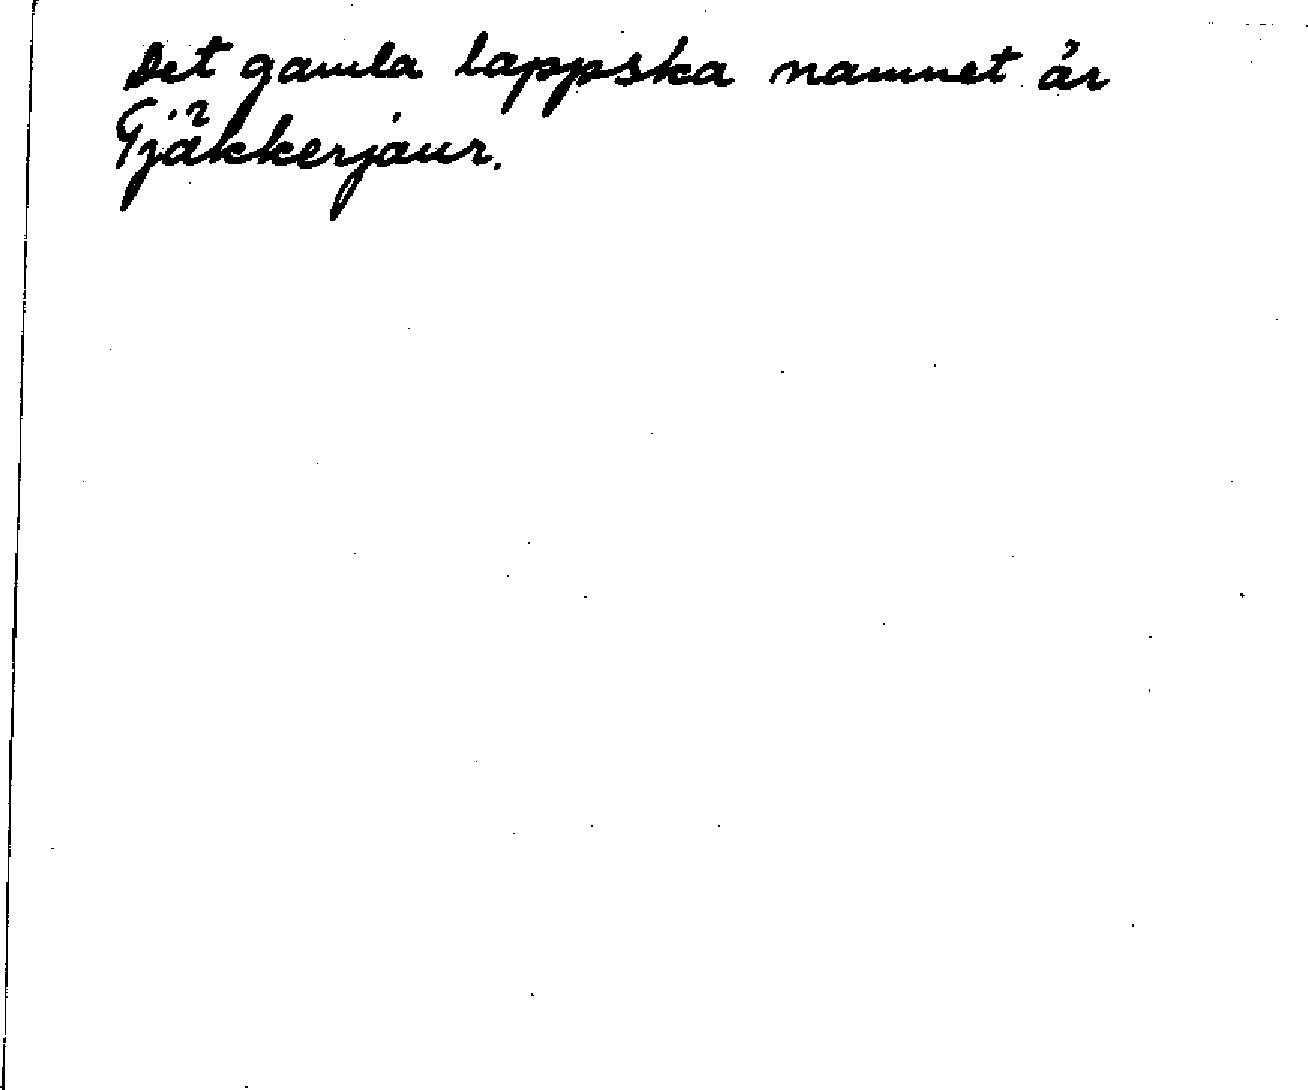 Det gamla lappska namnet är
Tjäkkerjaur.